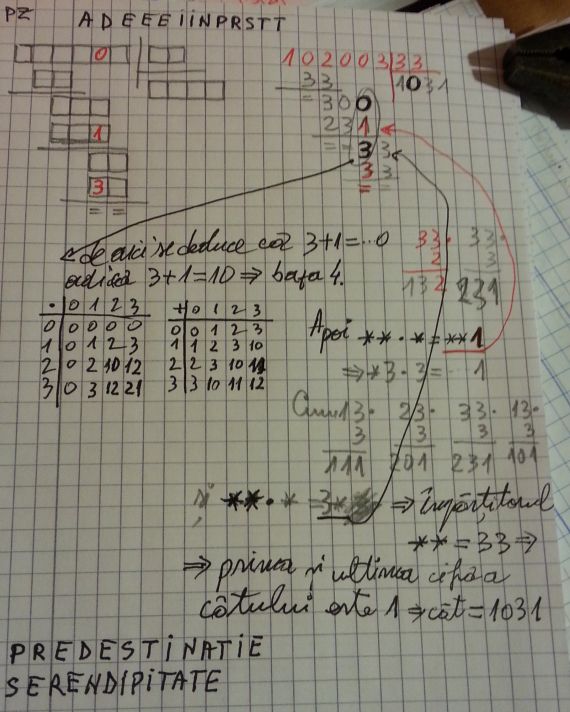 PZ
ADEEEIINPRSTT
0
102003 33
33 1031
=300
1
231
==33
3
33
= =
= =
de aici se deduce că 3+1=...0
adică 3+1=10 ⇒ baza 4.
33· 33·
2 3
132 231
· 0 1 2 3
0 0 0 0 0
1 0 1 2 3
2 0 2 10 12
3 0 3 12 21
+ 0 1 2 3
0 0 1 2 3
1 1 2 3 10
2 2 3 10 11
3 3 10 11 12
Apoi **·*=**1
⇒*3·3=...1
13· 23· 33· 13·
3 3 3 3
111 201 231 101
și **·* = 3* ⇒ împărțitorul
** = 33 ⇒
⇒ prima și ultima cifră a
câtului este 1 ⇒ cât=1031
PREDESTINATIE
SERENDIPITATE